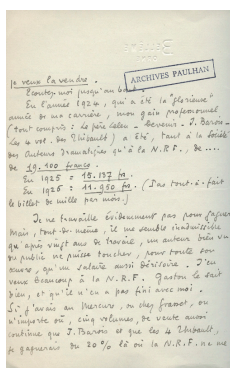 BELLÊME
ORNE
Je veux la vendre.
ARCHIVES PAULHAN
Ecoutez-moi jusqu'au bout.
En l'année 1924, qui a été la "glorieuse"
année de ma carrière, mon gain professionnel
(tout compris : le père Leleu - Devenir - J. Barois -
les 4 vol. des Thibault) a été, tant à la Société
des Auteurs Dramatiques qu'à la N.R.F., de....
de 19.100 francs.
En 1925 : 15.137 frs.
En 1926 : 11.950 frs. (Pas tout-à-fait
le billet de mille par mois.)
Je ne travaille évidemment pas pour gagner
Mais, tout de même, il me semble inadmissible
qu'après vingt ans de travail, un auteur bien vu
du public ne puisse toucher, pour toute son
œuvre, qu'un salaire aussi dérisoire. J'en
veux beaucoup à la N.R.F. Gaston le sait
bien, et qu'il n'en a pas fini avec moi.
Si j'avais au Mercure, ou chez Grasset, ou
n'importe où, cinq volumes, de vente aussi
continue que J. Barois et que les 4 Thibault,
je gagnerais du 20% là où la N.R.F. ne me